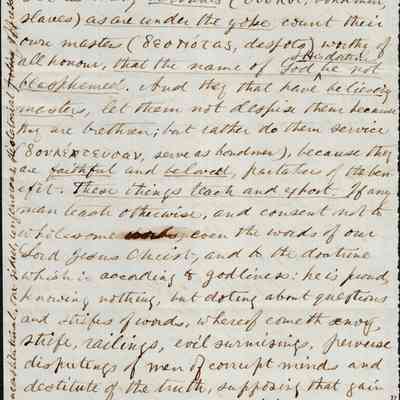 slaves) as are under the yoke count their
own masters (δεσπότας, despots) worthy of
all honour, that the name of God & His doctrine be not
blasphemed. And they that have believing
masters, let them not despise them because
they are brethren; but rather do them service
(δουλευέτωσαν, serve as bondmen), because they
are faithful and beloved, partakers of the ben-
efit. These things teach and exhort. If any
man teach otherwise, and consent not to
wholesome words, even the words of our
Lord Jesus Christ, and to the doctrine
which is according to godliness: he is proud,
knowing nothing, but doting about questions
and strifes of words, whereof cometh envy,
strife, railings, evil surmisings, perverse
disputings of men of corrupt minds and
destitute of the truth, supposing that gain